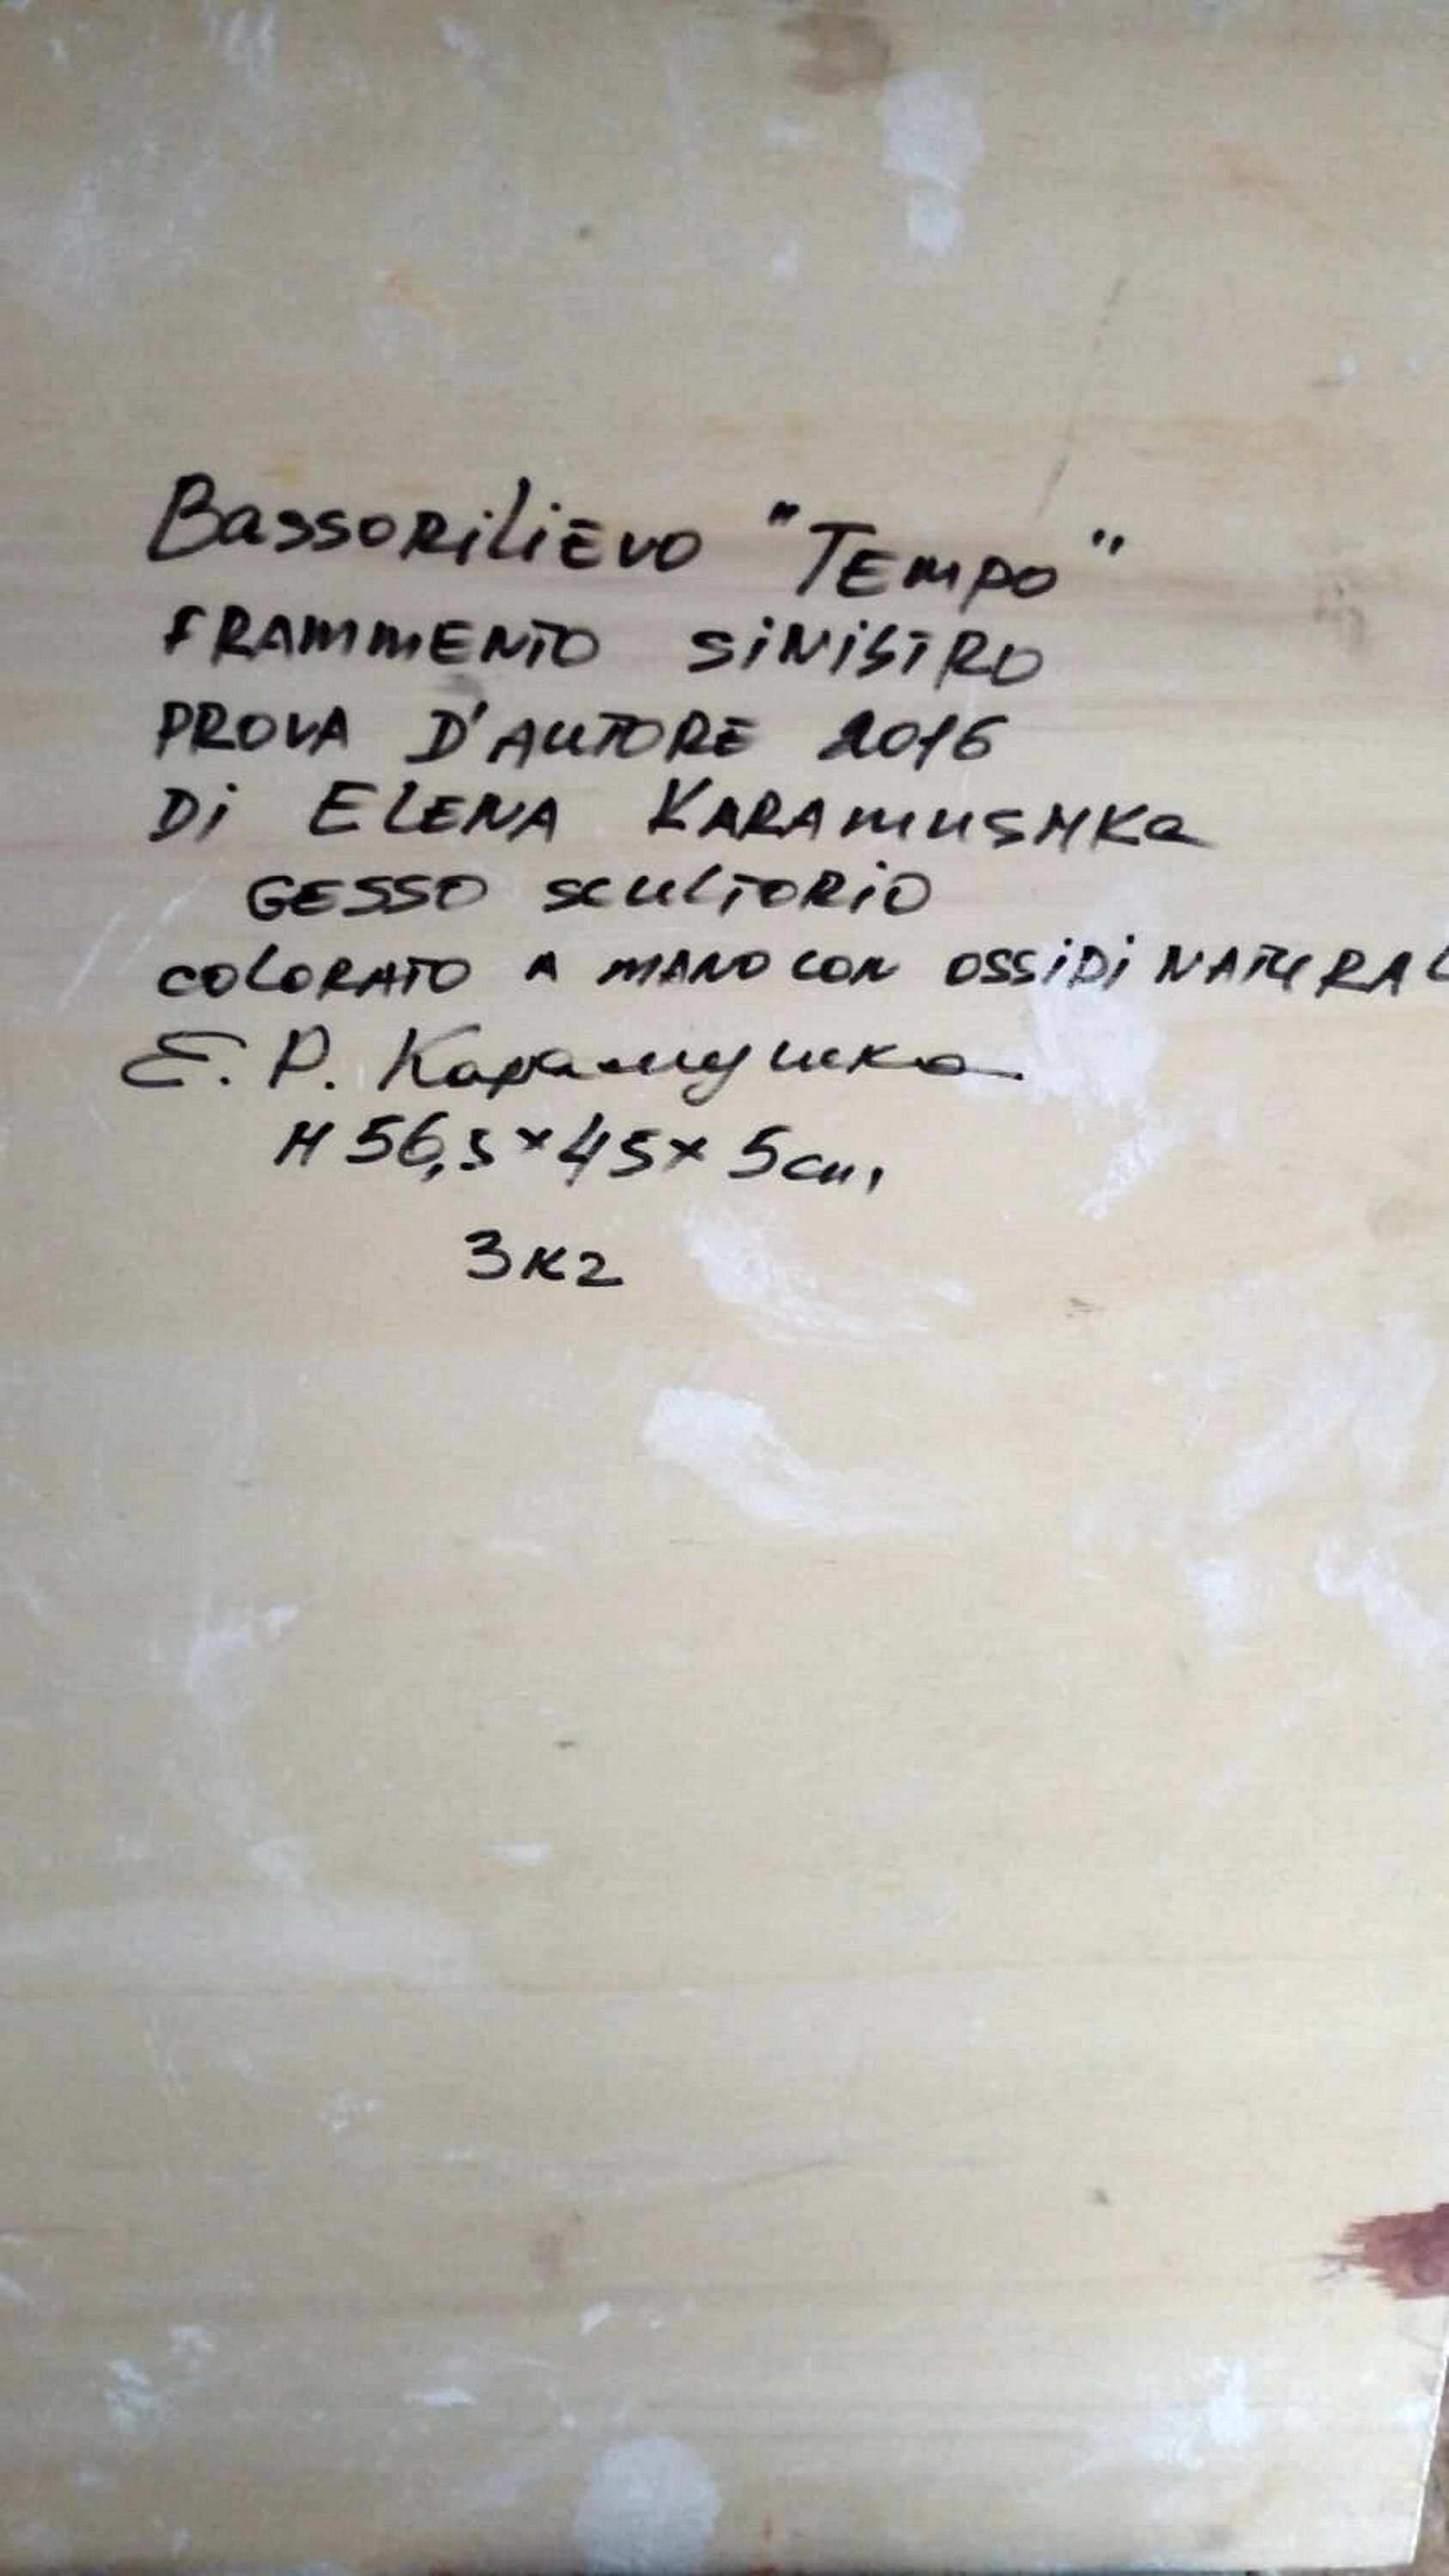 Bassorilievo "Tempo"
FRAMMENTO SINISTRO
PROVA D'AUTORE 2016
Di ELENA KARAMUSHKa
GESSO SCULTORIO
COLORATO A MANO CON OSSIDI NATURAL
Е. Р. Карамушка
H 56,5 x 45 x 5 cm,
3 кг